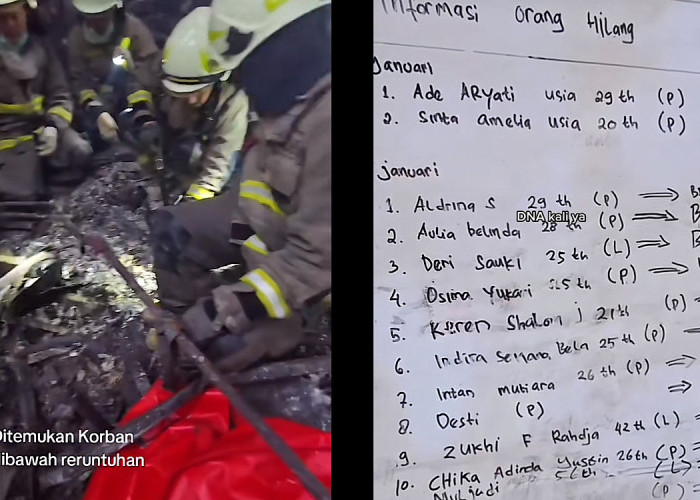 Ditemukan Korban
dibawah reruntuhan
Informasi Orang Hilang
Januari
1. Ade ARyati usia 29 th (P)
2. Sinta amelia usia 20 th (P)
januari
1. Aldrina S 29 th (P) ⇒
DNA kali ya
2. Aulia belinda 28 th (P) ⇒
3. Deri Sauki 25 th (L) ⇒
4. Osima Yukari 25 th (P) ⇒
5. Karen Shalom j 21 th (P)
6. Indira Semara Bela 25 th (P)
7. Intan mutiara 26 th (P) ⇒
8. Desti (P) ⇒
9. Zukhi F Rahdja 42 th (L)
10. CHika Adinda Yustin 26 th (P)
Muljadi (L)
(P)